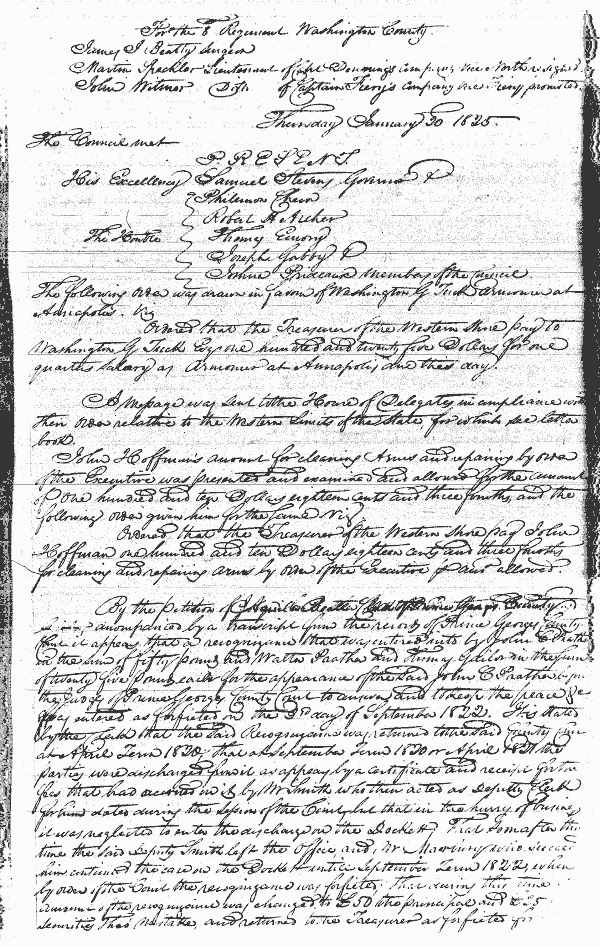 For the 8 Regiment Washington County.
James I Beatty Surgeon
Martin Speckler Lieutenant of Capt Dunnings Company vice North resigned
John Witmer Do of Captain Fiery's Company vice Fiery promoted
Thursday January 20 1825.
The Council met
PRESENT
His Excellency Samuel Stevens Governor &
Philemon Chew
Robert H Archer
The Honble Thomas Emory
Joseph Gabby &
Josiah Prideaux members of the Council
The following order was drawn in favor of Washington G Tuck Armourer at
Annapolis. Viz
Ordered that the Treasurer of the Western Shore pay to
Washington G Tuck Esqr one hundred and twenty five Dollars for one
quarters salary as Armourer at Annapolis due this day.
A message was sent to the House of Delegates in compliance with
their order relative to the Western Limits of the State for which see letter
book.
John Hoffman's account for cleaning Arms and repairing by order
of the Executive was presented and examined and allowed for the amount
of one hundred and ten Dollars eighteen cents and three fourths, and the
following order given him for the same Viz.
Ordered that the Treasurer of the Western Shore pay John
Hoffman one hundred and ten Dollars eighteen cents and three fourths
for cleaning and repairing arms by order of the Executive & acct allowed.
By the Petition of
accompanied by a transcript from the record of Prince Georges County
Court it appears that a recognizance that was entered into by John C Prather
in the sum of fifty pounds and Walter Prather and Thomas in the sum
of twenty five pounds each for the appearance of the said John C Prather
the Judges of Prince Georges County Court to answer, and to keep the peace &c
was entered as forfeited on the day of September 1822. It is stated
by the Clerk that the said Recognizance was returned to the said County Court
at April Term 1820, that at September Term 1820 or April 1821 the
parties were discharged from it as appears by a certificate and receipt for the
fees that had accrued in it by Mr Smith who then acted as Deputy Clerk
for him dated during the Session of the Court, but that in the hurry of business
it was neglected to enter the discharge on the Docket, That soon after this
time the said Deputy Smith left the Office and, Mr who succeeded
him continued the case on the Docket until September Term 1822, when
by order of the Court the recognizance was forfeited. That during this time
amount of the recognizance was changed to £50 the principal and £25
securities thro mistake, and returned to the Treasurer as forfeited for